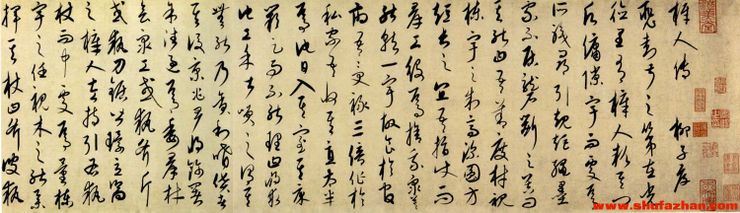 梓人傳 柳子厚
裴封叔之第在光
德里有梓人款其門
願傭隙宇而處焉
所職尋引規矩繩墨
家不居礱斲之器問
其能曰吾善度材視
棟宇之制高深圓方
短長之宜吾指使而
群工役焉捨我眾莫
能就一宇故食於官
府吾受祿三倍作於
私家吾收其直太半
焉他日入其室其床
闕足而不能理曰將求
他工余甚笑之謂其
無能而貪祿嗜貨者
其後京兆尹將飾官署
余往過焉委群材
會眾工或執斧斤
或執刀鋸皆環立嚮
之梓人左持引右執
杖而中處焉量棟
宇之任視木之能舉
揮其杖曰斧彼執
www.shufazhan.com